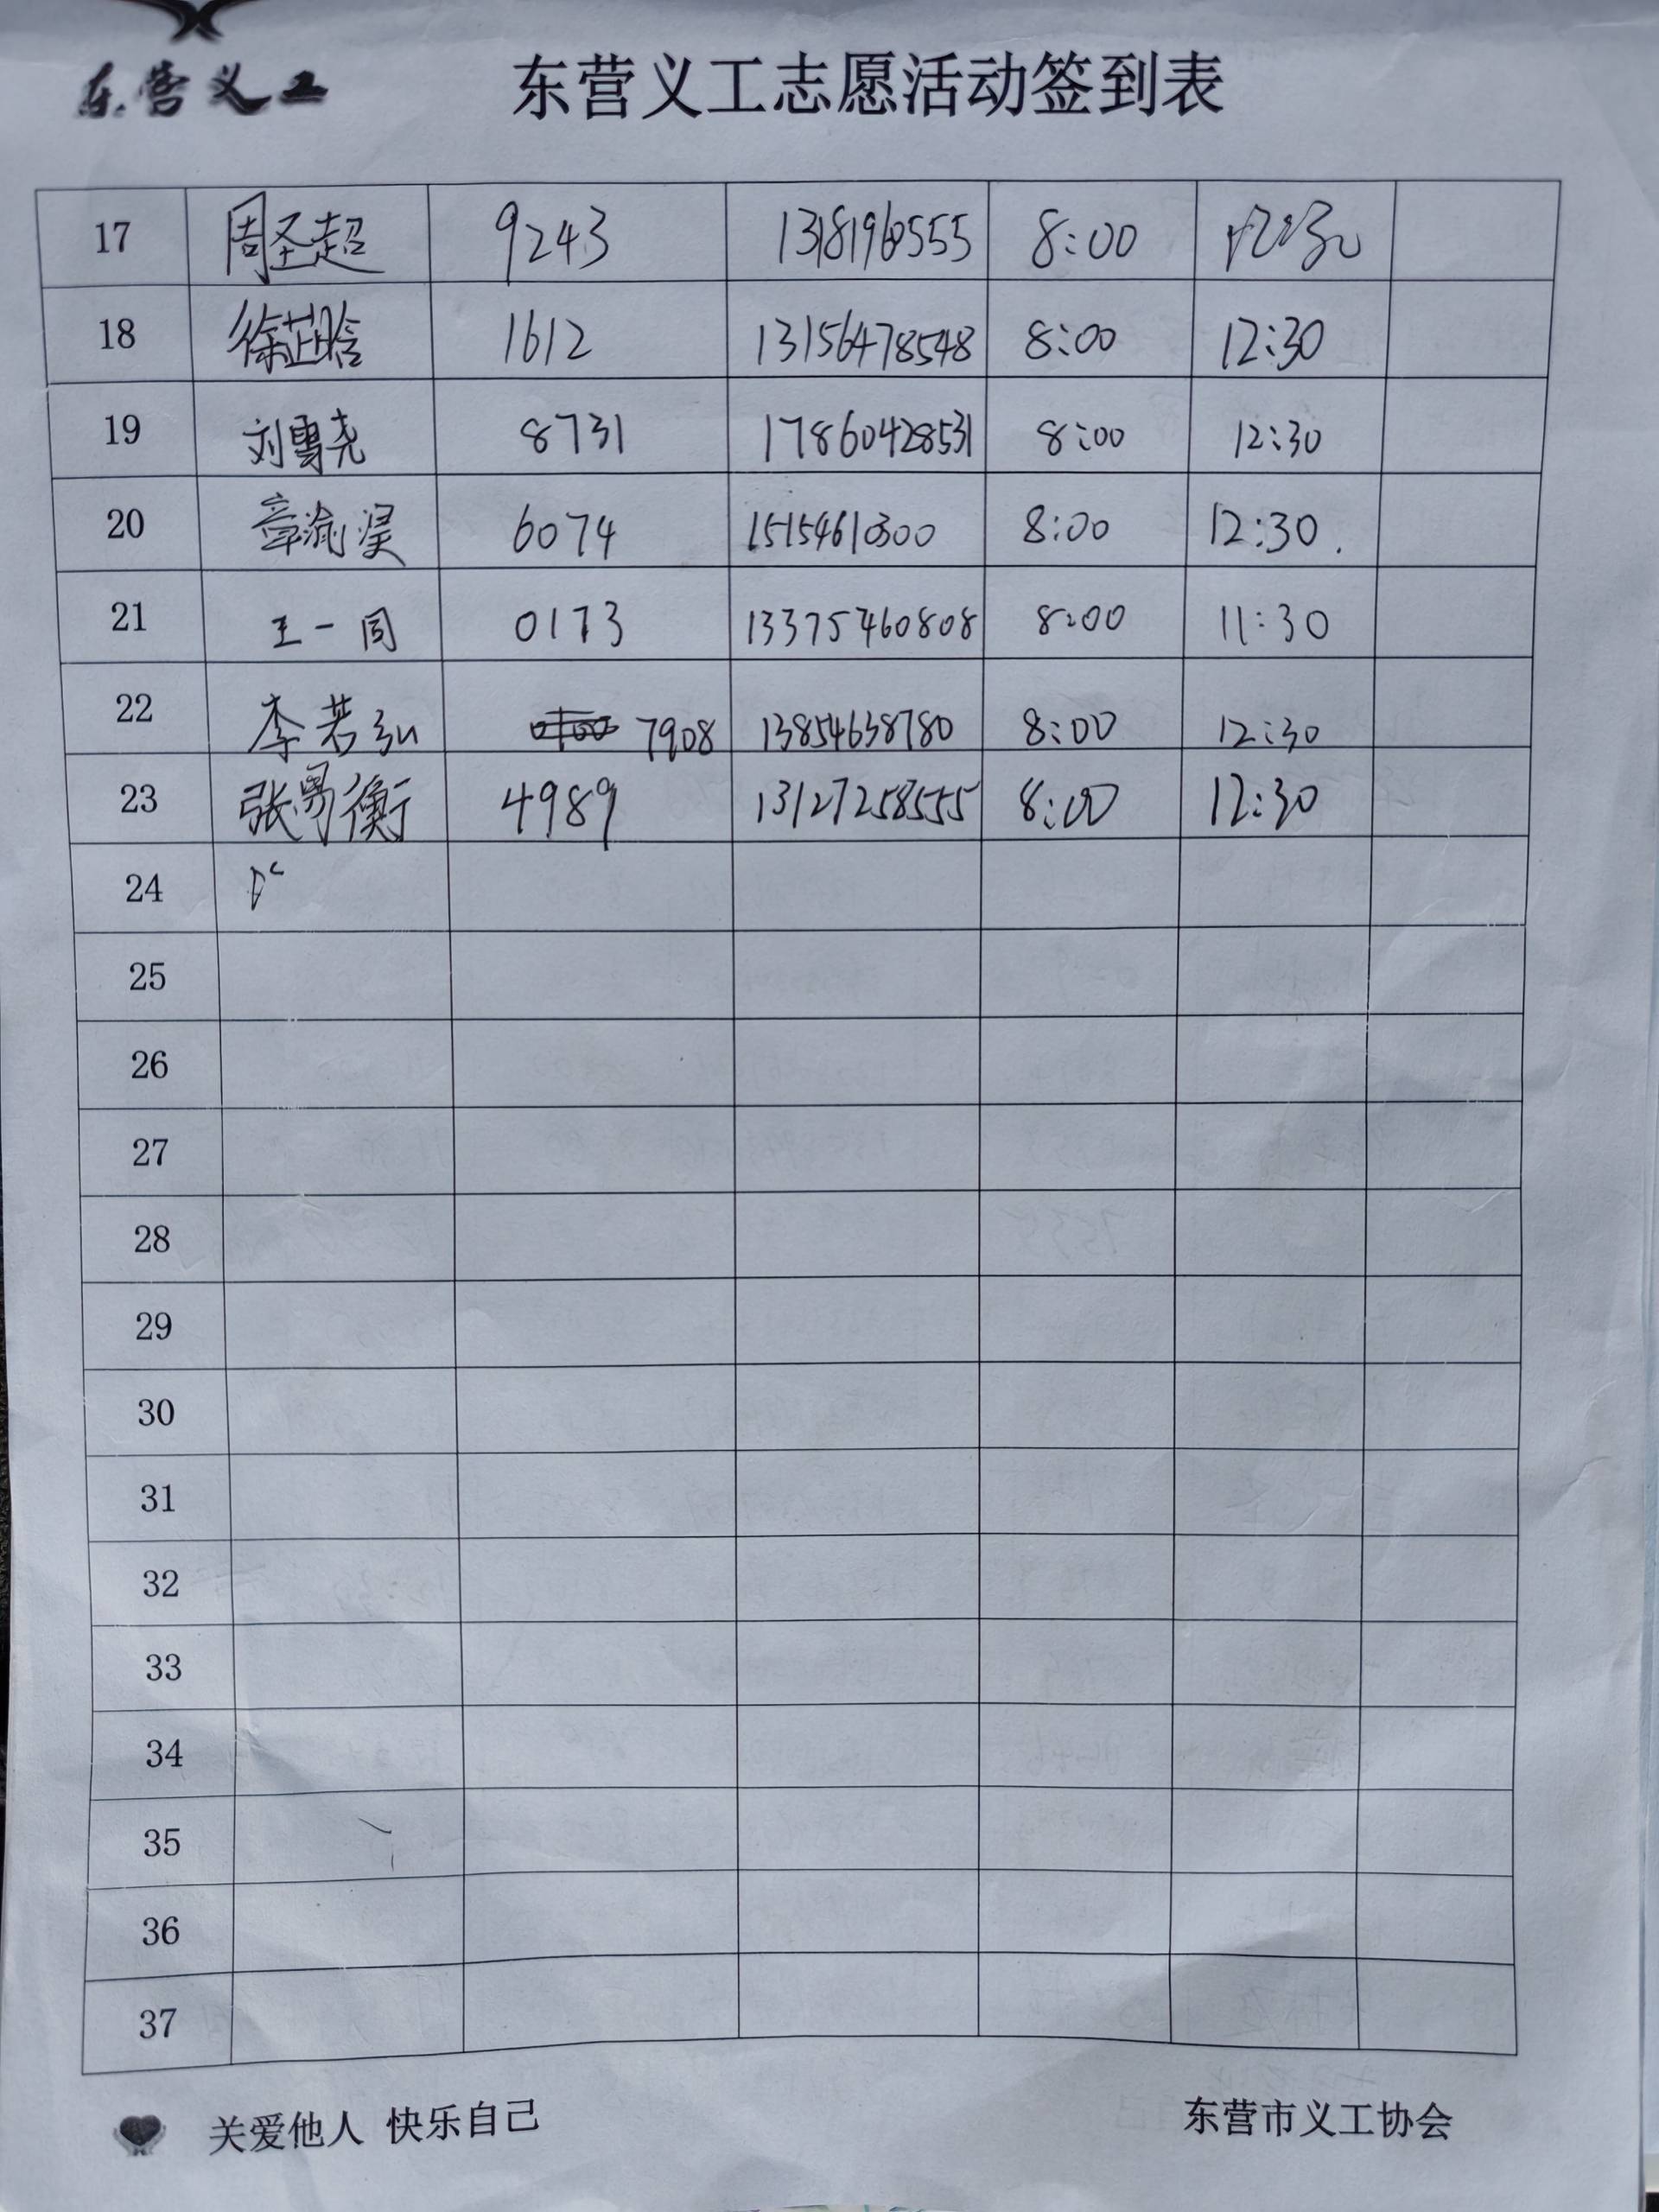 东营义工
东营义工志愿活动签到表
17 周圣超 9243 8:00
18 徐芷晗 1612 13156478548 8:00 12:30
19 刘雪尧 8731 17860428531 8:00 12:30
20 章 6074 15154610300 8:00 12:30.
21 王一同 0173 13375460808 8:00 11:30
22 李若弘 7908 13854638780 8:00 12:30
23 张勇衡 4989 13127258555 8:00 12:30
24
25
26
27
28
29
30
31
32
33
34
35
36
37
关爱他人 快乐自己
东营市义工协会